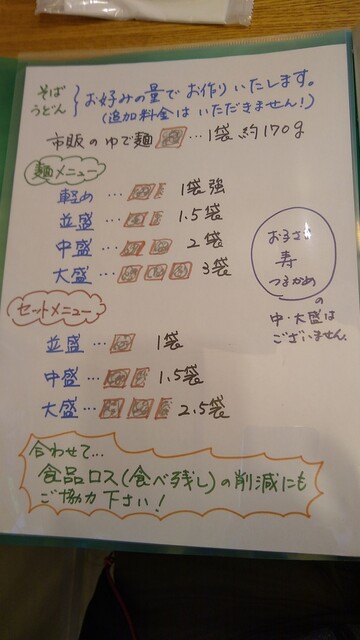 そば
うどん
お好みの量でお作りいたします。
(追加料金はいただきません!)
市販のゆで麺 … 1袋 約170g
麺メニュー
軽め … 1袋強
並盛 … 1.5袋
中盛 … 2袋
大盛 … 3袋
お子さい
寿
つるかめ
の
中・大盛は
ございません。
セットメニュー
並盛 … 1袋
中盛 … 1.5袋
大盛 … 2.5袋
合わせて…
食品ロス(食べ残し)の削減にも
ご協力下さい!